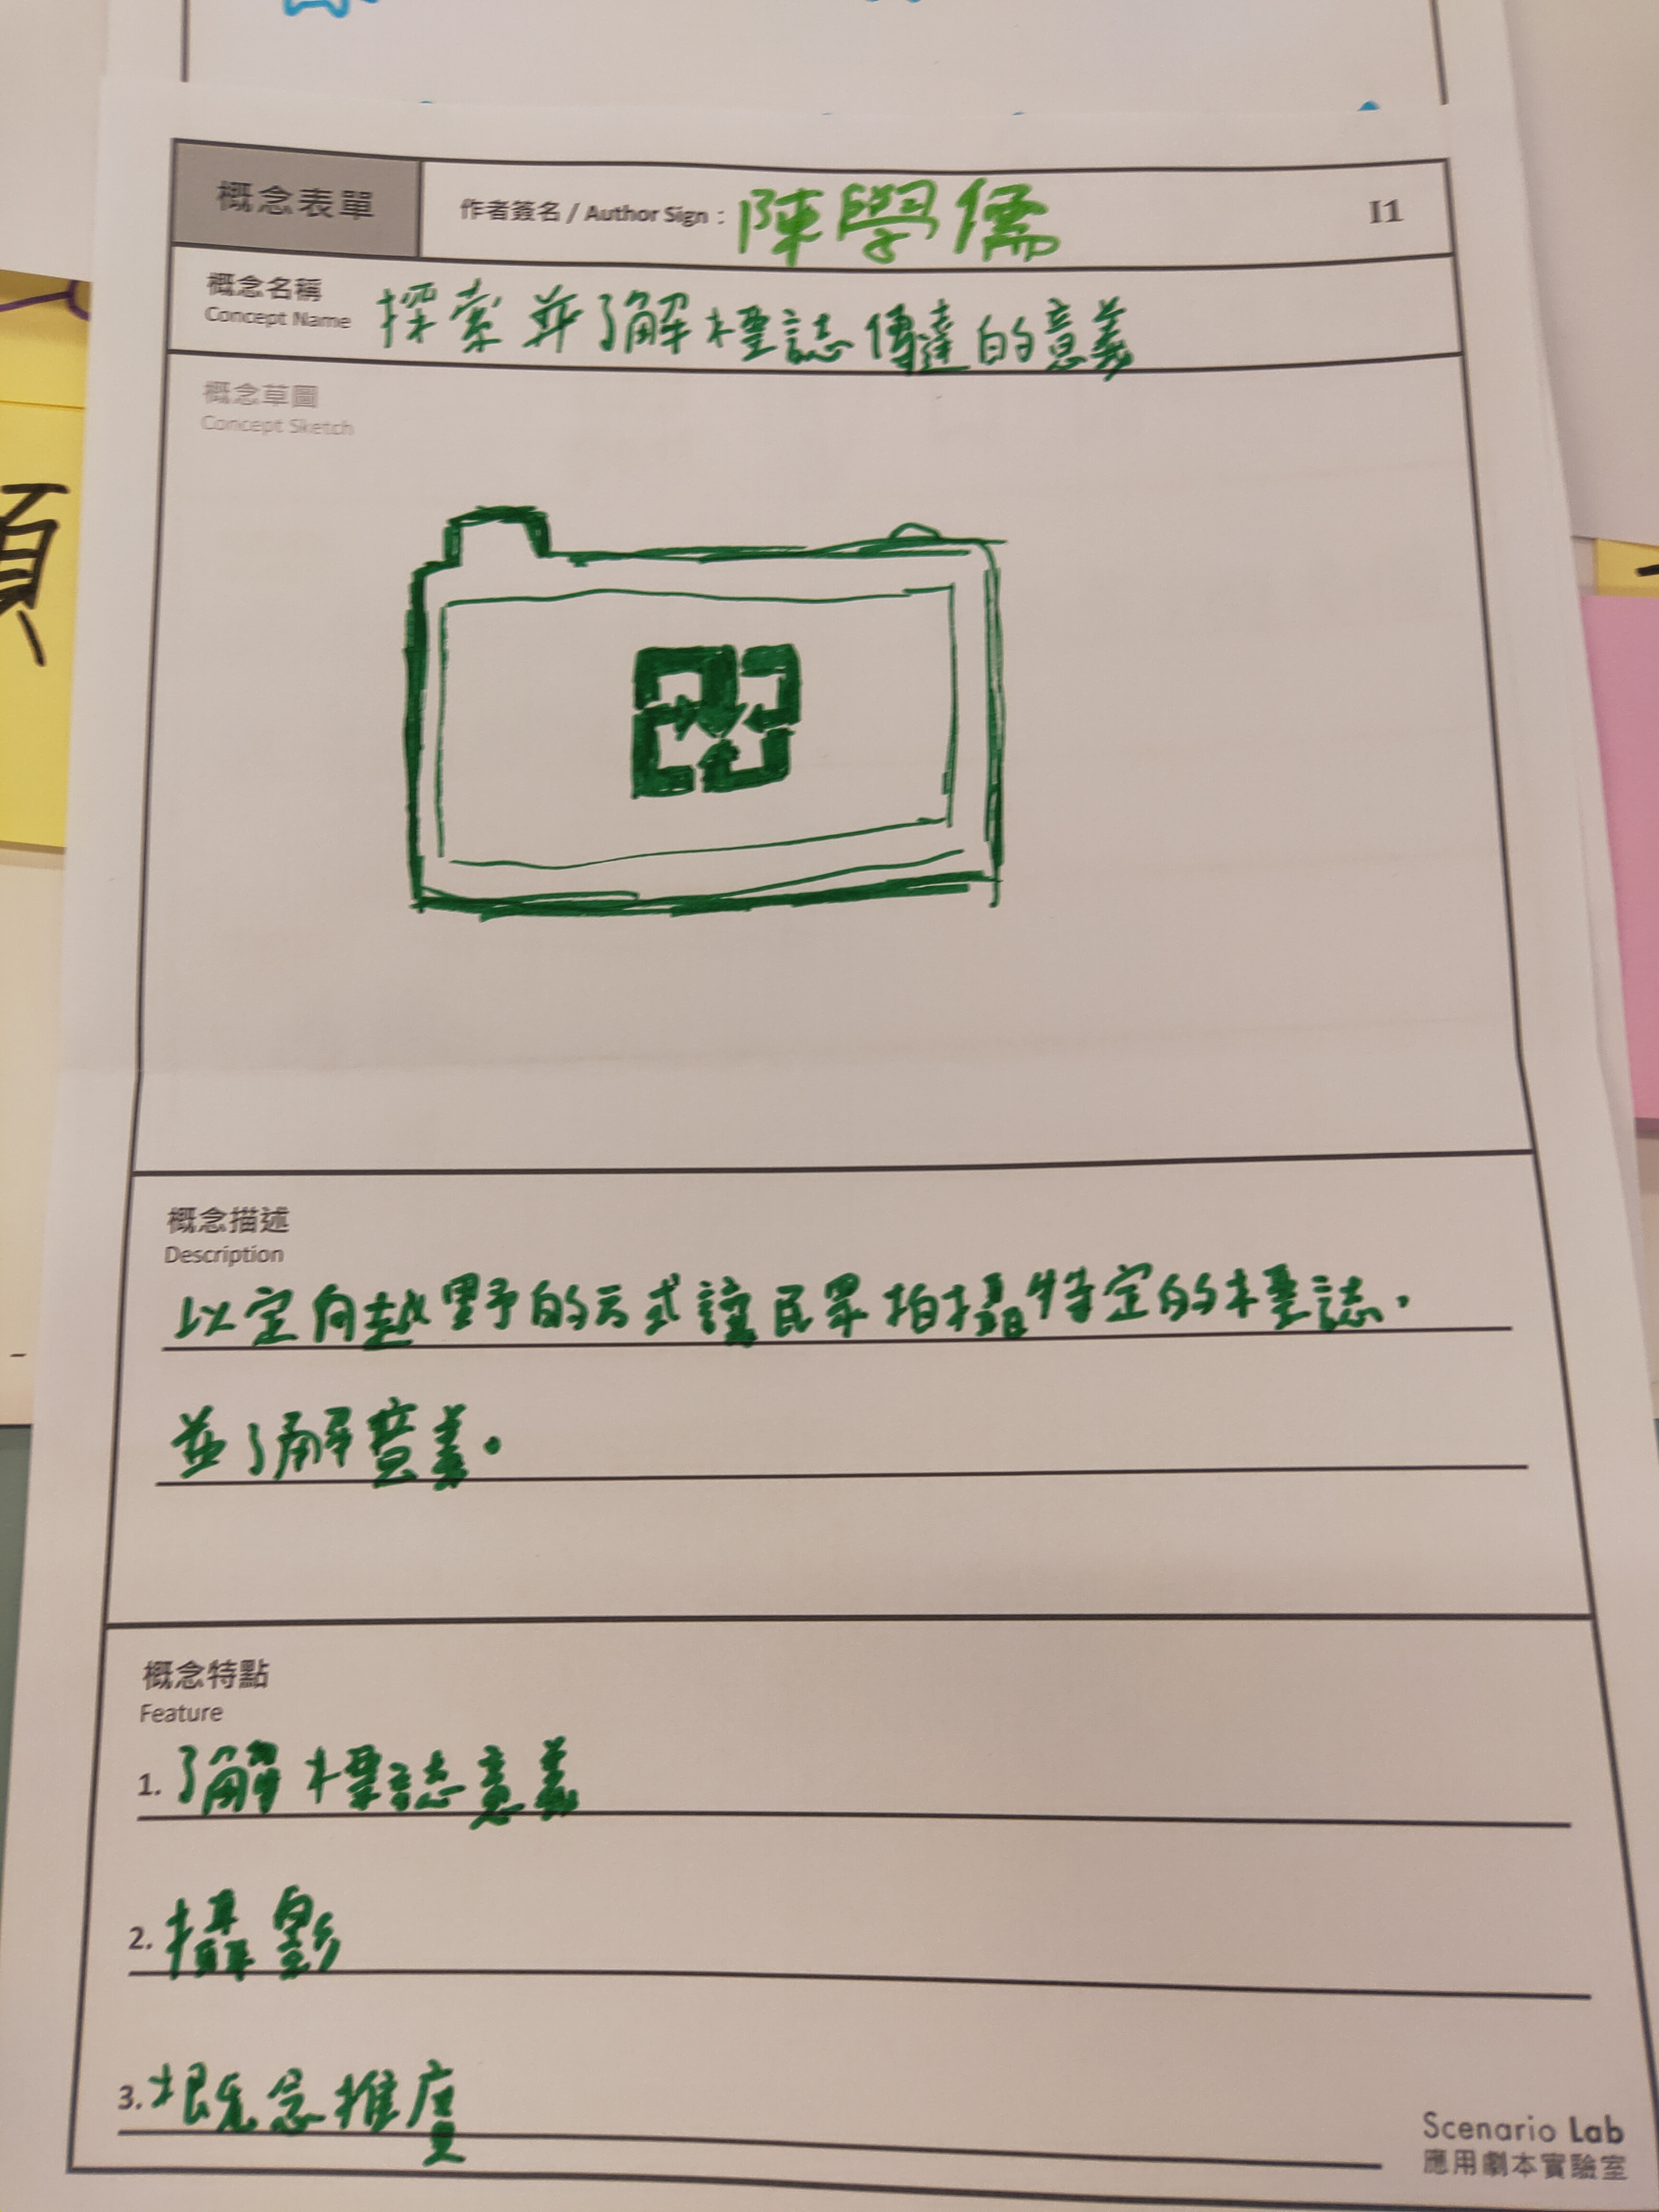 概念表單
作者簽名 / Author Sign : 陳學儒
I1
概念名稱
Concept Name
探索并了解標誌傳達的意義
概念草圖
Concept Sketch
概念描述
Description
以定向越野的方式讓民眾拍攝特定的標誌,
並了解意義。
概念特點
Feature
1. 了解標誌意義
2. 攝影
3. 概念推廣
Scenario Lab
應用劇本實驗室